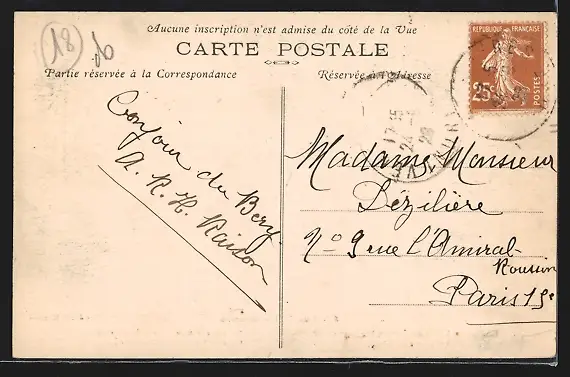 Aucune inscription n'est admise du côté de la Vue
CARTE POSTALE
Partie réservée à la Correspondance
Réservée à l'Adresse
18
RÉPUBLIQUE FRANÇAISE
25c
POSTES
17 - 15
24
26
Bonjour du Bery
A. R. H. Raison
Madame Monsieur
Dézilière
N° 9 rue l'Amiral
Roussin
Paris 15e